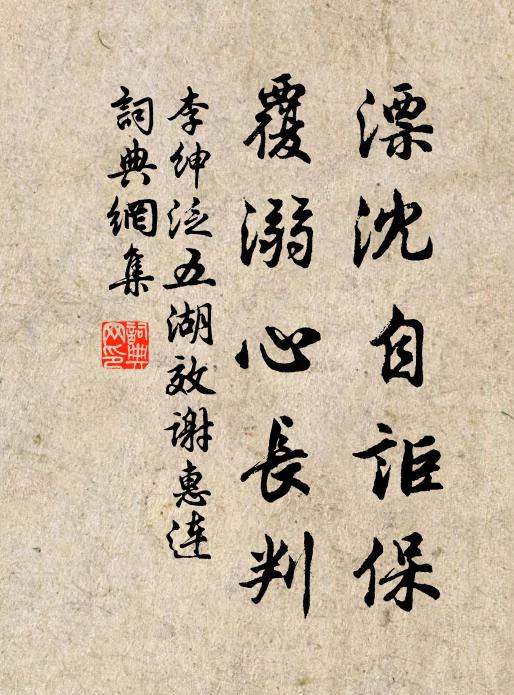 漂沈自詎保
覆溺心長判
李紳泛五湖效謝惠連
詞典網集
詞典網印